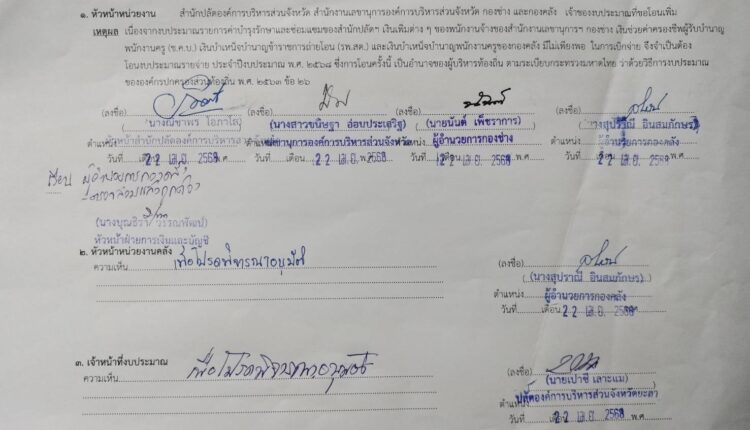 ๑. หัวหน้าหน่วยงาน สำนักปลัดองค์การบริหารส่วนจังหวัด สำนักงานเลขานุการองค์การบริหารส่วนจังหวัด กองช่าง และกองคลัง เจ้าของงบประมาณที่ขอโอนเพิ่ม
เหตุผล เนื่องจากงบประมาณรายการค่าบำรุงรักษาและซ่อมแซมของสำนักปลัดฯ เงินเพิ่มต่าง ๆ ของพนักงานจ้างของสำนักงานเลขานุการฯ กองช่าง เงินช่วยค่าครองชีพผู้รับบำนาญ
พนักงานครู (ช.ค.บ.) เงินบำเหน็จบำนาญข้าราชการถ่ายโอน (รพ.สต.) และเงินบำเหน็จบำนาญพนักงานครูของกองคลัง มีไม่เพียงพอ ในการเบิกจ่าย จึงจำเป็นต้อง
โอนงบประมาณรายจ่าย ประจำปีงบประมาณ พ.ศ. ๒๕๖๘ ซึ่งการโอนครั้งนี้ เป็นอำนาจของผู้บริหารท้องถิ่น ตามระเบียบกระทรวงมหาดไทย ว่าด้วยวิธีการงบประมาณ
ขององค์กรปกครองส่วนท้องถิ่น พ.ศ. ๒๕๖๓ ข้อ ๒๖
(ลงชื่อ) (ลงชื่อ) (ลงชื่อ) (ลงชื่อ)
(นางสาวขนิษฐา อ่อนประเสริฐ) (นายนันต์ เพ็ชราการ) (นางสุปราณี อินสมภักษร)
ตำแหน่ง ผู้อำนวยการกองช่าง ตำแหน่ง ผู้อำนวยการกองคลัง
วันที่ 22 เม.ย. 2568 พ.ศ. วันที่ 22 เม.ย. 2568 วันที่ 22 เม.ย. 2568 พ.ศ. วันที่ 22 เม.ย. 2568
เรียน ผู้อำนวยการกองคลัง
หัวหน้าฝ่ายการเงินและบัญชี
๒. หัวหน้าหน่วยงานคลัง
ความเห็น เพื่อโปรดพิจารณาอนุมัติ (ลงชื่อ)
(นางสุปราณี อินสมภักษร)
ตำแหน่ง ผู้อำนวยการกองคลัง
วันที่ 22 เม.ย. 2568
๓. เจ้าหน้าที่งบประมาณ
ความเห็น เพื่อโปรดพิจารณาอนุมัติ (ลงชื่อ)
(นายเปาซี เลาะแม)
ตำแหน่ง ปลัดองค์การบริหารส่วนจังหวัดยะลา
วันที่ 22 เม.ย. 2568 พ.ศ.